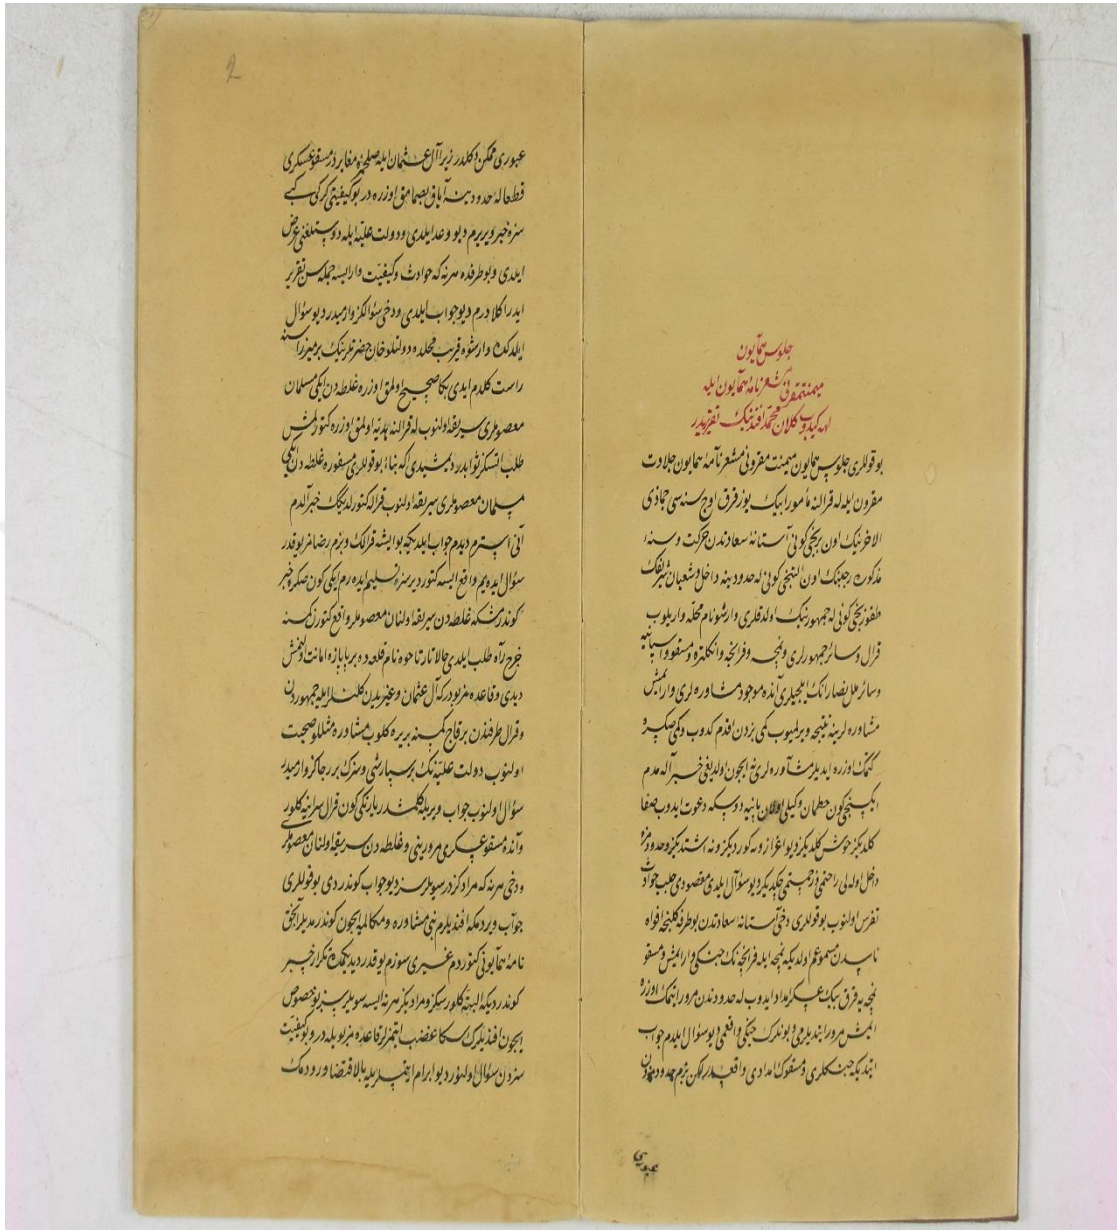 جلوس همايون
ميمنتمقرونی مشعر نامهٔ همايون ايله
لهه كيدوب كلان محمد افندينك تقريريدر
بو قوللری جلوس همايون ميمنت مقرونی مشعر نامهٔ همايون جلادت
مقرون ايله له قرالنه مأمورا بيك يوز قرق اوچ سنه سی جماذی
الاخرنك اون برنجی كونی آستانهٔ سعادتدن حركت وسنهٔ
مذكوره رجبنك اون التنجی كونی له حدودينه داخل وشعبان شريفك
طقوزنجی كونی له جمهورينك اولدقلری وارشو نام محله واريلوب
قرال وسائر جمهورلری ونمچه وفرانچه وانكلتره ومسقو واسپانيه
وسائر ملل نصارانك ايلچيلری آنده موجود مشاوره لری وار ايمش
مشاوره لرينه نتيجه ويرلميوب كمی بزدن اقدم كدوب وكمی صكره
كتمك اوزره ايديلر مشاوره لری نه ايچون اولديغی خبر آله مدم
ايكنجی كون حطمان وكيلی اولان پانيه دوسكه دعوت ايدوب صفا
كلديكز خوش كلديكز ديو اعزاز ونه كورديكز ونه اشتديكز وحدودمزه
داخل اوله لی راحتمی وزحمتمی چكديكز ديو سؤال ايلدی مقصودی جلب حوادث
تفرس اولنوب بو قوللری دخی آستانهٔ سعادتدن بو طرفه كلنجه افواه
ناسدن مسموعم اولديكه نمچه ايله فرانچه نك جنكی وار ايمش ومسقو
نمچه يه قرق بيك عسكر امداد ايدوب له حدودندن مرور ايتمك اوزره
ايمش مرور ايتديلرمی وبونلرك جنكی واقعمی ديو سؤال ايلدم جواب
ايتديكه جنكلری ومسقوك امدادی واقعدر لكن بزم حدودمزدن
عبوری
2
عبوری ممكن دكلدر زيرا آل عثمان ايله صلحمزه مغايردر مسقو عسكری
قطعا له حدودينه آياق بصمامق اوزره در بو كيفيتی كركی كبی
سزه خبر ويريرم ديو وعد ايلدی ودولت عليه ايله دوستلغنی عرض
ايلدی وبو طرفده هر نه كه حوادث وكيفيت وار ايسه جمله سن تقرير
ايدر اكلادرم ديو جواب ايلدی ودخی سؤالكز وارميدر ديو سؤال
ايلدكده وارشوه قريب محلده دولتلو خان حضرتلرينك بر ميرزاسنه
راست كلدم ايدی بكا صحيح اولمق اوزره غلطه دن ايكی مسلمان
معصوملری سريقه اولنوب له قرالنه هديه اولمق اوزره كتورلمش
طلب ايتسكز تو ايدر ديمشيدی كه بناءً بو قوللری مسفوره غلطه دن ايكی
مسلمان معصوملری سريقه اولنوب قراله كتورلديكك خبر آلدم
آنی استرم ديدم جواب ايلديكه بو ايشه قرالك وبزم رضامز يوقدر
سؤال ايده يم واقع ايسه كتورديرسزه تسليم ايده رم ايكی كون صكره خبر
كوندرمشكه غلطه دن سريقه اولنان معصوملر واقع كتورن كمسنه
خرج راه طلب ايلدی حالا تارتاحوه نام قلعه ده بر پاپازه امانت اولنمش
ديدی وقاعده مز بودركه آل عثمان وغيريدن كلنلر ايله جمهوردن
وقرال طرفندن بر قاچ كمسنه بر يره كلوب مشاوره مثللو صحبت
اولنوب دولت عليه نك بر سپارشی وسزك بر رجاكز وارميدر
سؤال اولنوب جواب ويريله كلمشدر يارنكی كون قرال سراينه كلوری
وآنده مسقو عسكری مرورينی وغلطه دن سريقه اولنان معصوملری
ودخی هر نه كه مرادكزدر سويلرسز ديو جواب كوندردی بو قوللری
جواب ويردمكه افنديلرم بنی مشاوره ومكالمه ايچون كوندرمديلر آنجق
نامهٔ همايونی كتوردم غيری سوزم يوقدر ديديكمده تكرار خبر
كوندرديكه البته كلورسكز ومراديكز هر نه ايسه سويلرسز بو خصوص
ايچون افنديلرك سكا غضب ايتمزلر قاعده مز بويله در وبو كيفيت
سزدن سؤال اولنور ديو ابرام ايتمهلريله بالاقتضا وروَدمك